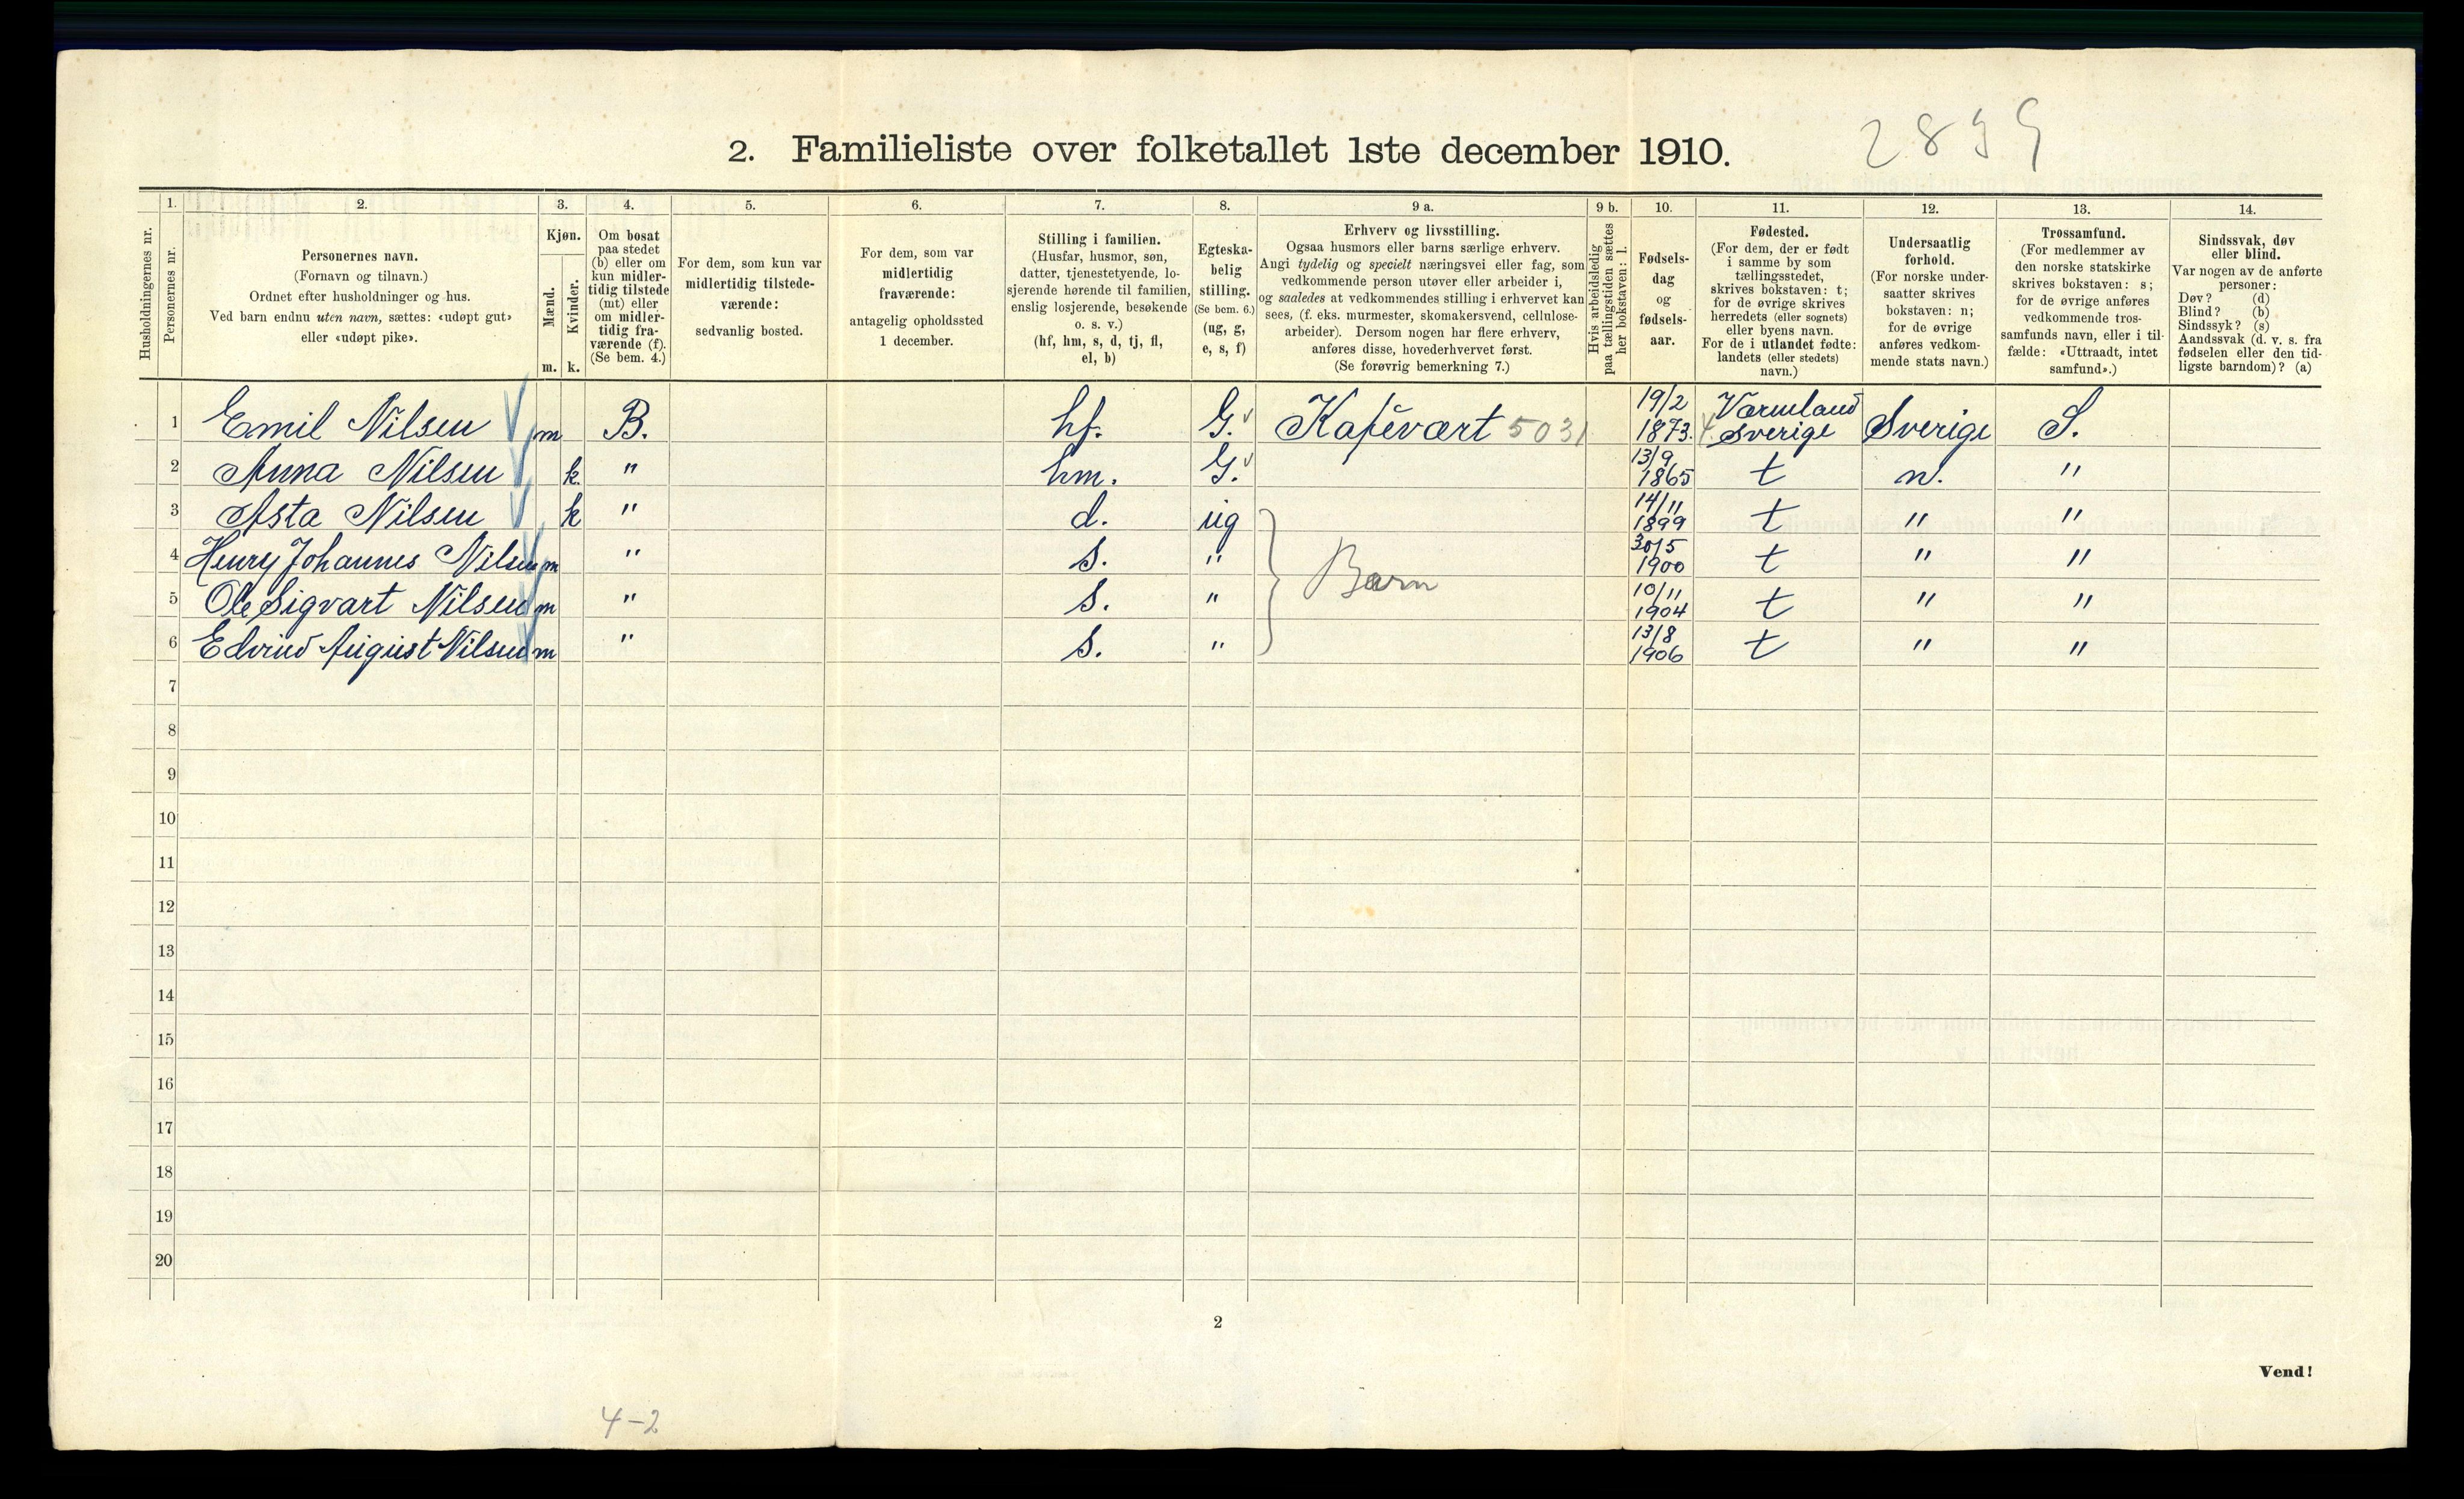 2899
2. Familieliste over folketallet 1ste december 1910.
Husholdningernes nr.
1.
Personernes nr.
2.
Personernes navn.
(Fornavn og tilnavn.)
Ordnet efter husholdninger og hus.
Ved barn endnu uten navn, sættes: «udøpt gut»
eller «udøpt pike».
3.
Kjøn.
Mænd.
Kvinder.
m. k.
4.
Om bosat
paa stedet
(b) eller om
kun midler-
tidig tilstede
(mt) eller
om midler-
tidig fra-
værende (f).
(Se bem. 4.)
5.
For dem, som kun var
midlertidig tilstede-
værende:
sedvanlig bosted.
6.
For dem, som var
midlertidig
fraværende:
antagelig opholdssted
1 december.
7.
Stilling i familien.
(Husfar, husmor, søn,
datter, tjenestetyende, lo-
sjerende hørende til familien,
enslig losjerende, besøkende
o. s. v.)
(hf, hm, s, d, tj, fl,
el, b)
8.
Egteska-
belig
stilling.
(Se bem. 6.)
(ug, g,
e, s, f)
9 a.
Erhverv og livsstilling.
Ogsaa husmors eller barns særlige erhverv.
Angi tydelig og specielt næringsvei eller fag, som
vedkommende person utøver eller arbeider i,
og saaledes at vedkommendes stilling i erhvervet kan
sees, (f. eks. murmester, skomakersvend, cellulose-
arbeider). Dersom nogen har flere erhverv,
anføres disse, hovederhvervet først.
(Se forøvrig bemerkning 7.)
9 b.
Hvis arbeidsledig
paa tællingstiden sættes
her bokstaven: l.
10.
Fødsels-
dag
og
fødsels-
aar.
11.
Fødested.
(For dem, der er født
i samme by som
tællingsstedet,
skrives bokstaven: t;
for de øvrige skrives
herredets (eller sognets)
eller byens navn.
For de i utlandet fødte:
landets (eller stedets)
navn.)
12.
Undersaatlig
forhold.
(For norske under-
saatter skrives
bokstaven: n;
for de øvrige
anføres vedkom-
mende stats navn.)
13.
Trossamfund.
(For medlemmer av
den norske statskirke
skrives bokstaven: s;
for de øvrige anføres
vedkommende tros-
samfunds navn, eller i til-
fælde: «Uttraadt, intet
samfund».)
14.
Sindssvak, døv
eller blind.
Var nogen av de anførte
personer:
Døv? (d)
Blind? (b)
Sindssyk? (s)
Aandssvak (d. v. s. fra
fødselen eller den tid-
ligste barndom)? (a)
1 Emil Nilsen m B. hf. G. Kafévært 5031 19/2 1873. Værmland Sverige Sverige S.
2 Anna Nilsen k. " hm. G. 13/9 1865 t n. "
3 Asta Nilsen k " d. ug 14/11 1899 t " "
4 Henry Johannes Nilsen m " s. " Barn 30/5 1900 t " "
5 Ole Sigvart Nilsen m " s. " 10/11 1904 t " "
6 Edvind August Nilsen m " s. " 13/8 1906 t " "
7
8
9
10
11
12
13
14
15
16
17
18
19
20
2
Vend!
4-2